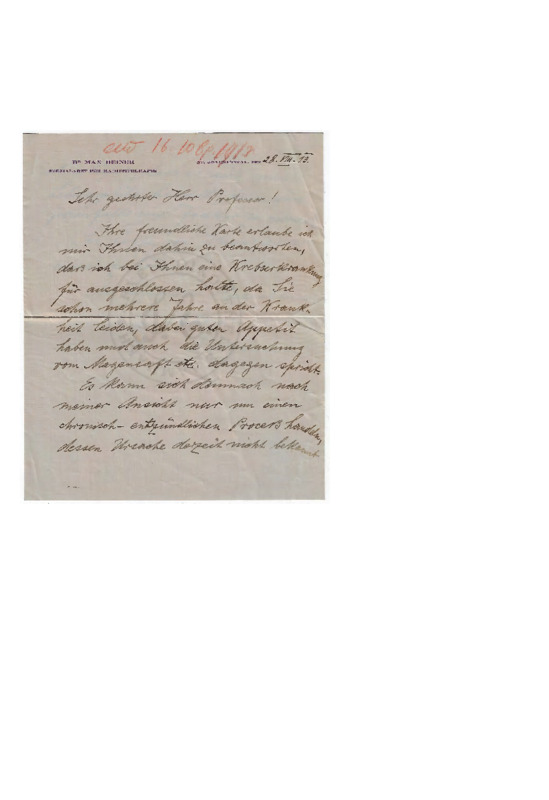 16. 1918
Dr MAX HEINRICH
28. VIII. 12
Sehr geehrter Herr Professor!
Ihre freundliche Karte erlaube ich
mir Ihnen dahin zu beantworten,
daß ich bei Ihnen eine Krebserkrankung
für ausgeschlossen halte, da Sie
schon mehrere Jahre an der Krank-
heit leiden, dabei guten Appetit
haben und auch die Untersuchung
vom Magensaft etc. dagegen spricht.
Es kann sich demnach nach
meiner Ansicht nur um einen
chronisch-entzündlichen Proceß handeln,
dessen Ursache derzeit nicht bekannt